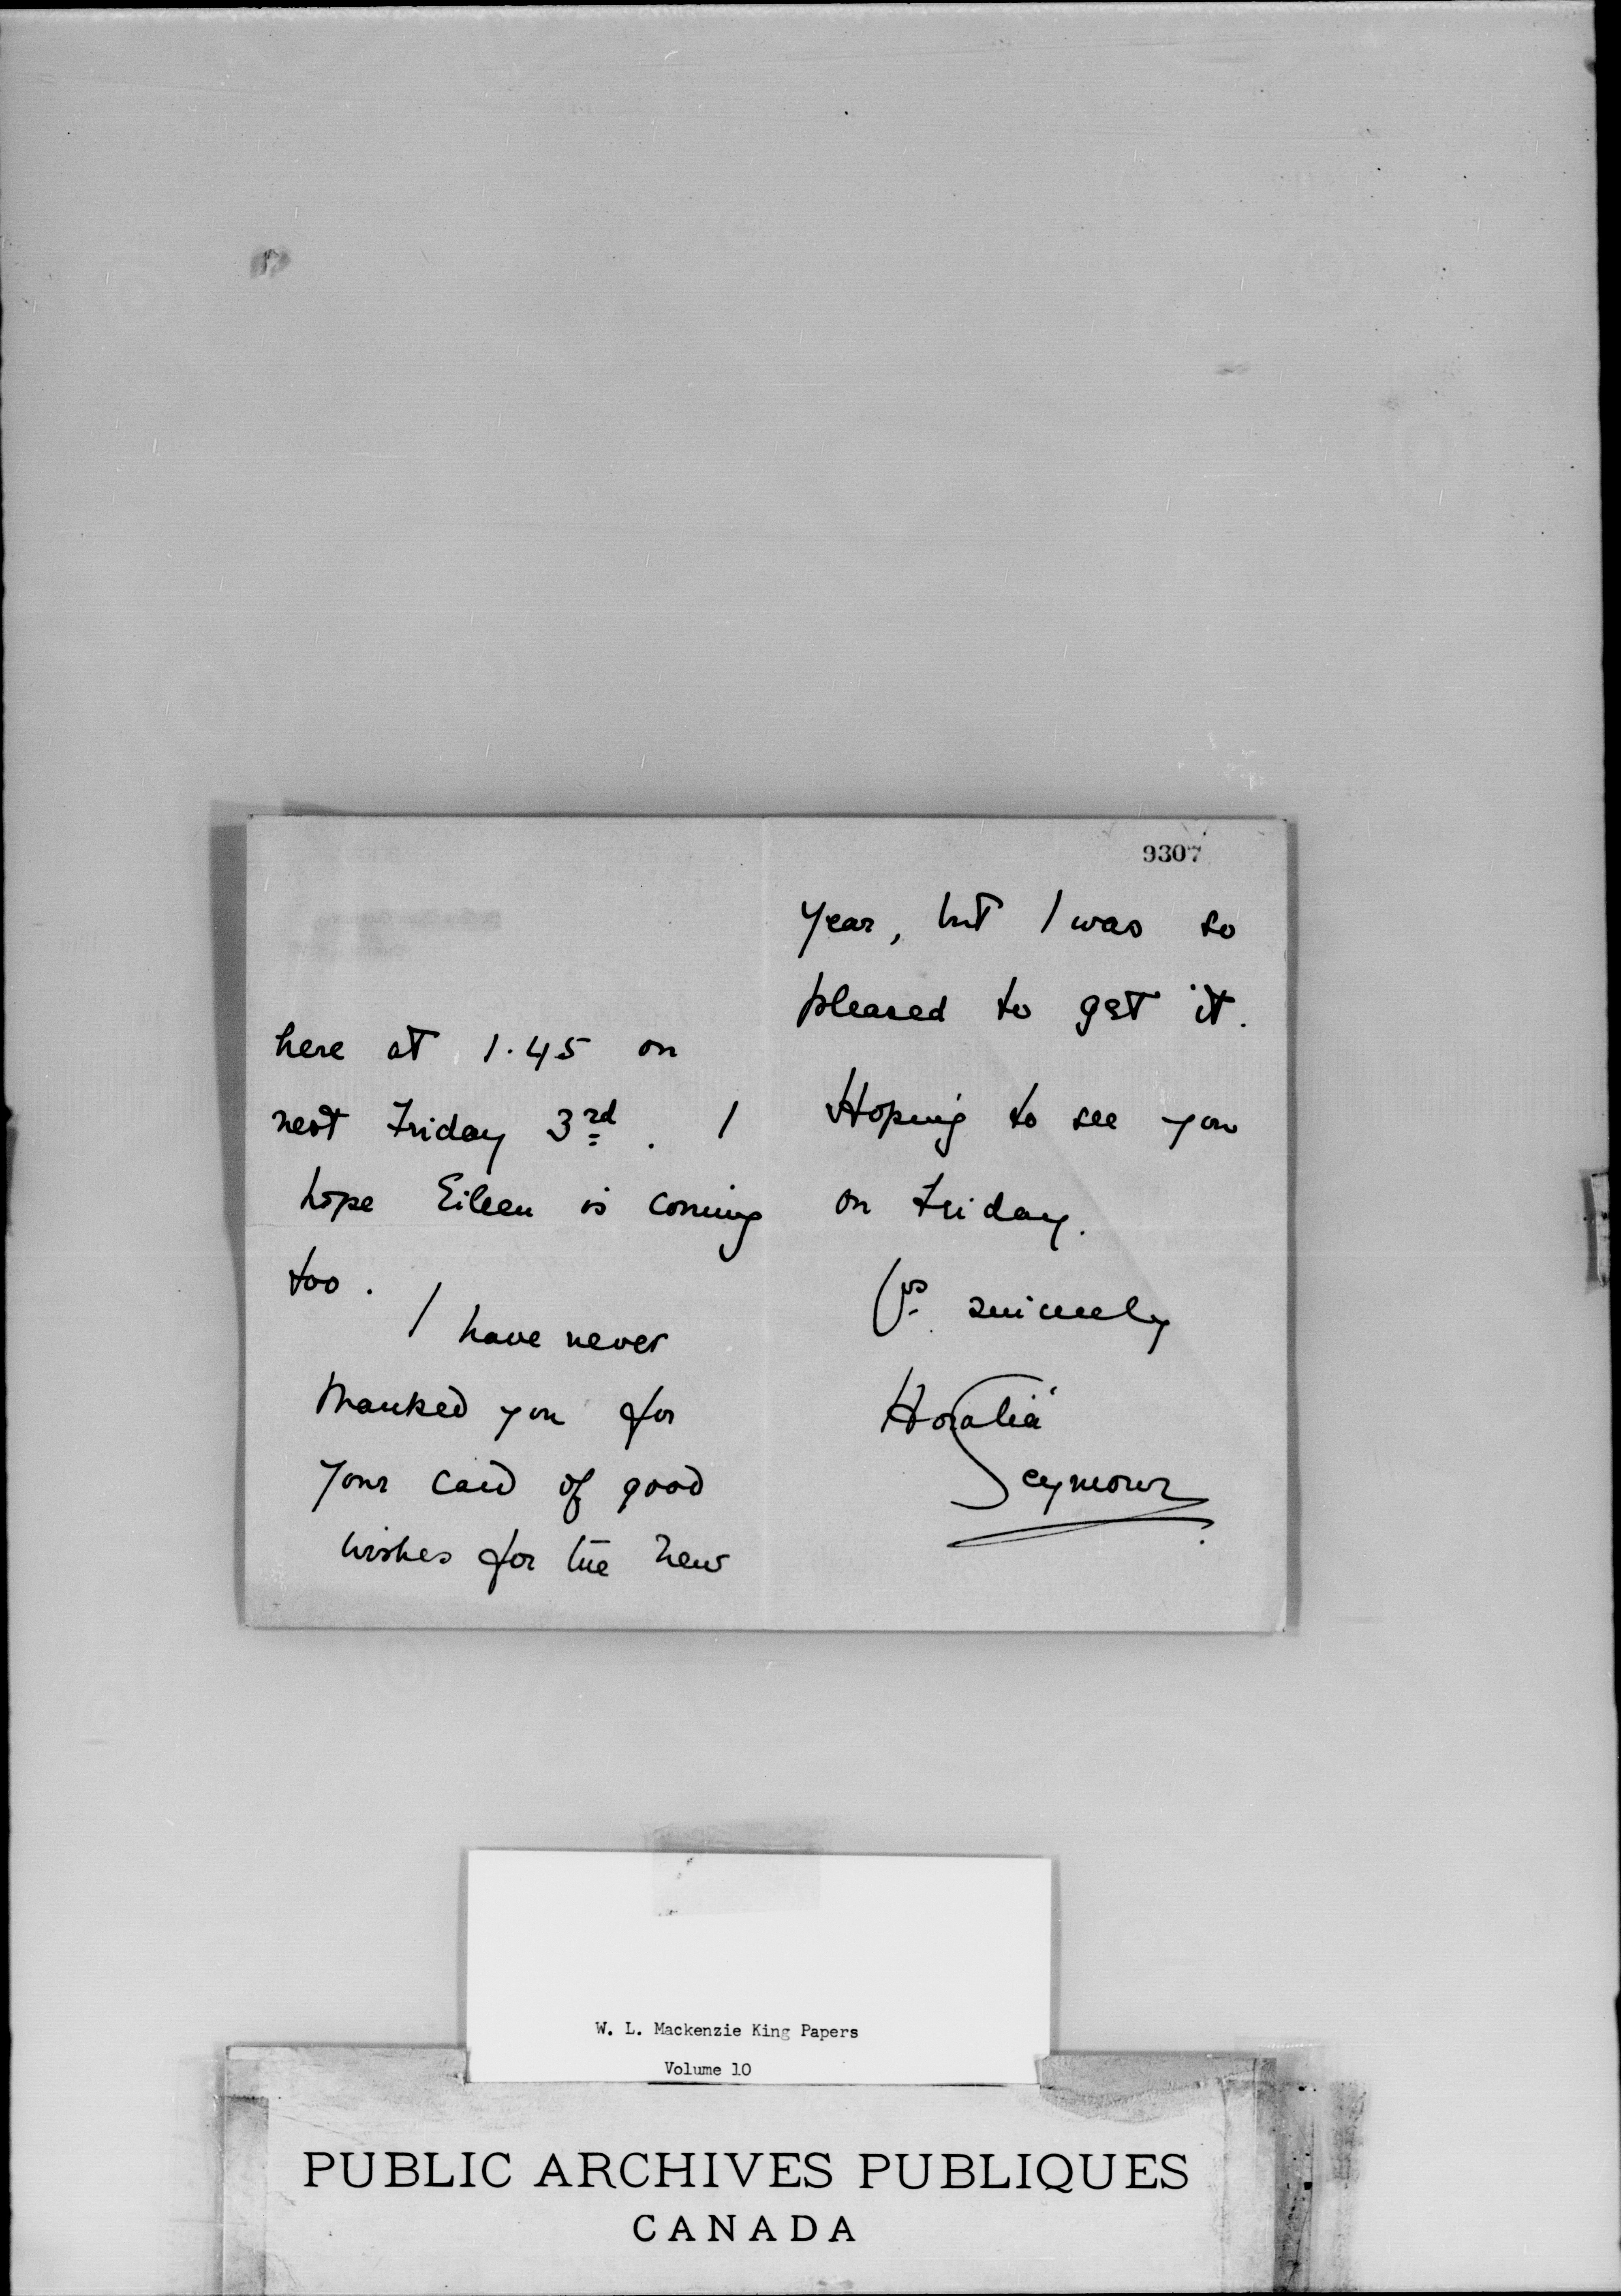 here at 1.45 on
next Friday 3rd. I
hope Eileen is coming
too.
I have never
thanked you for
your card of good
wishes for the New
9307
Year, but I was so
pleased to get it.
Hoping to see you
on Friday.
Yrs sincerely
Horatia
Seymour
W. L. Mackenzie King Papers
Volume 10
PUBLIC ARCHIVES PUBLIQUES
CANADA